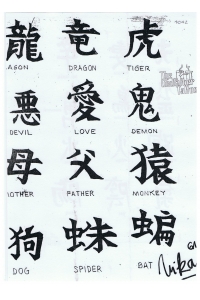 龍 竜 虎
AGON DRAGON TIGER
悪 愛 鬼
DEVIL LOVE DEMON
母 父 猿
MOTHER FATHER MONKEY
狗 蛛 蝙
DOG SPIDER BAT